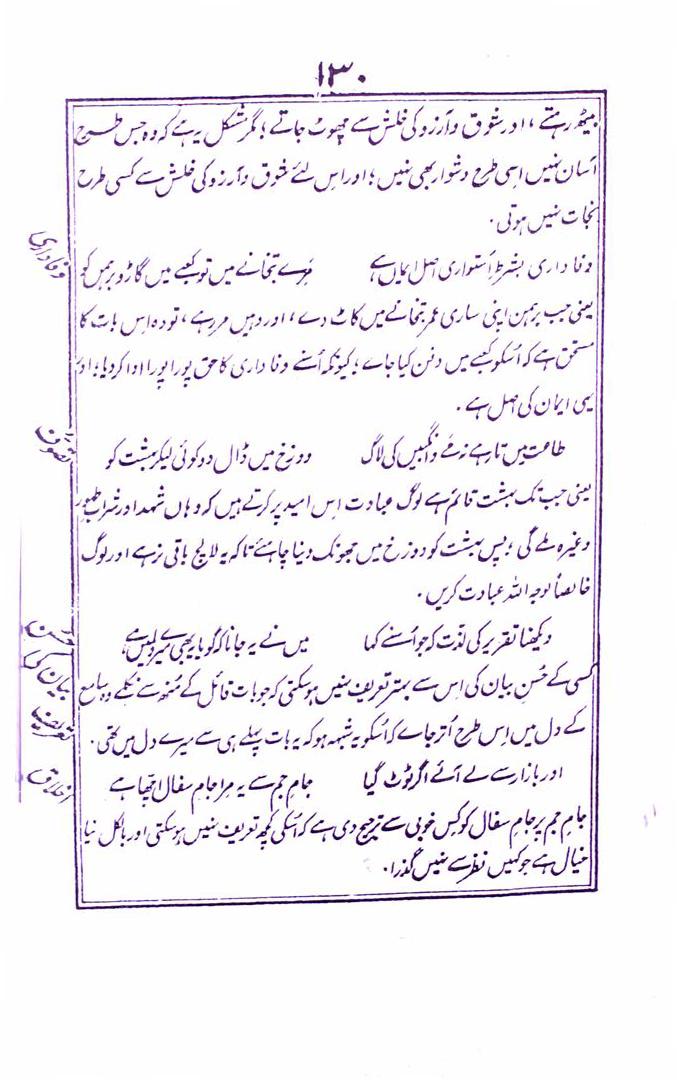 ۱۳۰
بیٹھ رہتے، اور شوق و آرزو کی خلش سے چھوٹ جاتے؛ مگر مشکل یہ ہے کہ وہ جس طرح
آسان نہیں اسی طرح دشوار بھی نہیں؛ اور اس لئے شوق و آرزو کی خلش سے کسی طرح
نجات نہیں ہوتی۔
وفاداری
وفاداری بشرطِ اُستواری اصلِ ایماں ہے مَرے بتخانے میں تو کعبے میں گاڑو برہمن کو
یعنی جب برہمن اپنی ساری عمر بتخانے میں کاٹ دے، اور وہیں مر رہے، تو وہ اس بات کا
مستحق ہے کہ اُسکو کعبے میں دفن کیا جائے؛ کیونکہ اُسنے وفاداری کا حق پورا پورا ادا کر دیا؛ اور
یہی ایمان کی اصل ہے۔
تصوف
طاعت میں تا رہے نہ مے و انگبیں کی لاگ دوزخ میں ڈال دو کوئی لیکر بہشت کو
یعنی جب تک بہشت قائم ہے لوگ عبادت اس امید پر کرتے ہیں کہ وہاں شہد اور شراب طہور
وغیرہ ملے گی؛ پس بہشت کو دوزخ میں جھونک دینا چاہئے تاکہ یہ لالچ باقی نہ رہے اور لوگ
خالصاً لوجہ اللہ عبادت کریں۔
حسن بیان کی تعریف
دیکھنا تقریر کی لذّت کہ جو اُسنے کہا میں نے یہ جانا کہ گویا یہ بھی میرے دل میں ہے
کسی کے حُسنِ بیان کی اس سے بہتر تعریف نہیں ہو سکتی کہ جو بات قائل کے مُنھ سے نکلے وہ سامع
کے دل میں اس طرح اُتر جائے کہ اُسکو یہ شبہہ ہو کہ یہ بات پہلے ہی سے میرے دل میں تھی۔
اخلاق
اور بازار سے لے آئے اگر ٹوٹ گیا جامِ جم سے یہ مِرا جامِ سفال اچّھا ہے
جامِ جم پر جامِ سفال کو کس خوبی سے ترجیح دی ہے کہ اُسکی کچھ تعریف نہیں ہو سکتی اور بالکل نیا
خیال ہے جو کہیں نظر سے نہیں گذرا۔